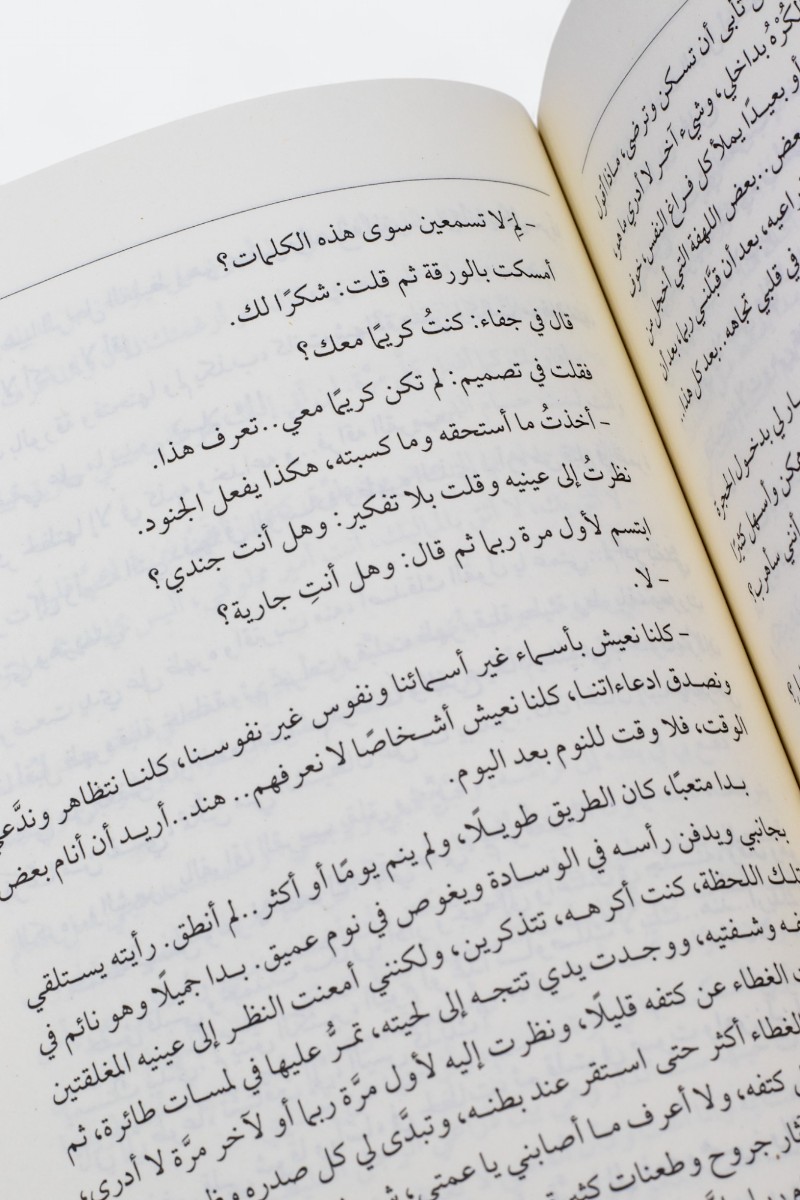 تأبى أن تسكن وترضى، ماذا أقول
الكُرْهُ بداخلي، وشيء آخر لا أدري ما هو،
أو بعيدًا يملأ كل فراغ النفس، خوف
بعض.. بعض اللهفة التي أخجل من
بعد أن قبَّلني ربما، بعد أن
في قلبي تجاهه.. بعد كل هذا..
لي بدخول الحجرة
وأسهل كثيرًا
أنني سأهرب؟
- لِمَ لا تسمعين سوى هذه الكلمات؟
أمسكت بالورقة ثم قلت: شكرًا لك.
قال في جفاء: كنتُ كريمًا معك؟
فقلت في تصميم: لم تكن كريمًا معي.. تعرف هذا.
- أخذتُ ما أستحقه وما كسبته، هكذا يفعل الجنود.
نظرتُ إلى عينيه وقلت بلا تفكير: وهل أنت جندي؟
ابتسم لأول مرة ربما ثم قال: وهل أنتِ جارية؟
- لا.
- كلنا نعيش بأسماء غير أسمائنا ونفوس غير نفوسنا، كلنا نتظاهر وندَّعي
ونصدق ادعاءاتنا، كلنا نعيش أشخاصًا لا نعرفهم.. هند.. أريد أن أنام بعض
الوقت، فلا وقت للنوم بعد اليوم.
بدا متعبًا، كان الطريق طويلًا، ولم ينم يومًا أو أكثر.. لم أنطق. رأيته يستلقي
بجانبي ويدفن رأسه في الوسادة ويغوص في نوم عميق. بدا جميلًا وهو نائم في
تلك اللحظة، كنت أكرهه، تتذكرين، ولكنني أمعنت النظر إلى عينيه المغلقتين
وشفتيه، ووجدت يدي تتجه إلى لحيته، تمرُّ عليها في لمسات طائرة، ثم
الغطاء عن كتفه قليلًا، ونظرت إليه لأول مرَّة ربما أو لآخر مرَّة لا أدري،
الغطاء أكثر حتى استقر عند بطنه، وتبدَّى لي كل صدره
كتفه، ولا أعرف ما أصابني يا عمتي،
جروح وطعنات